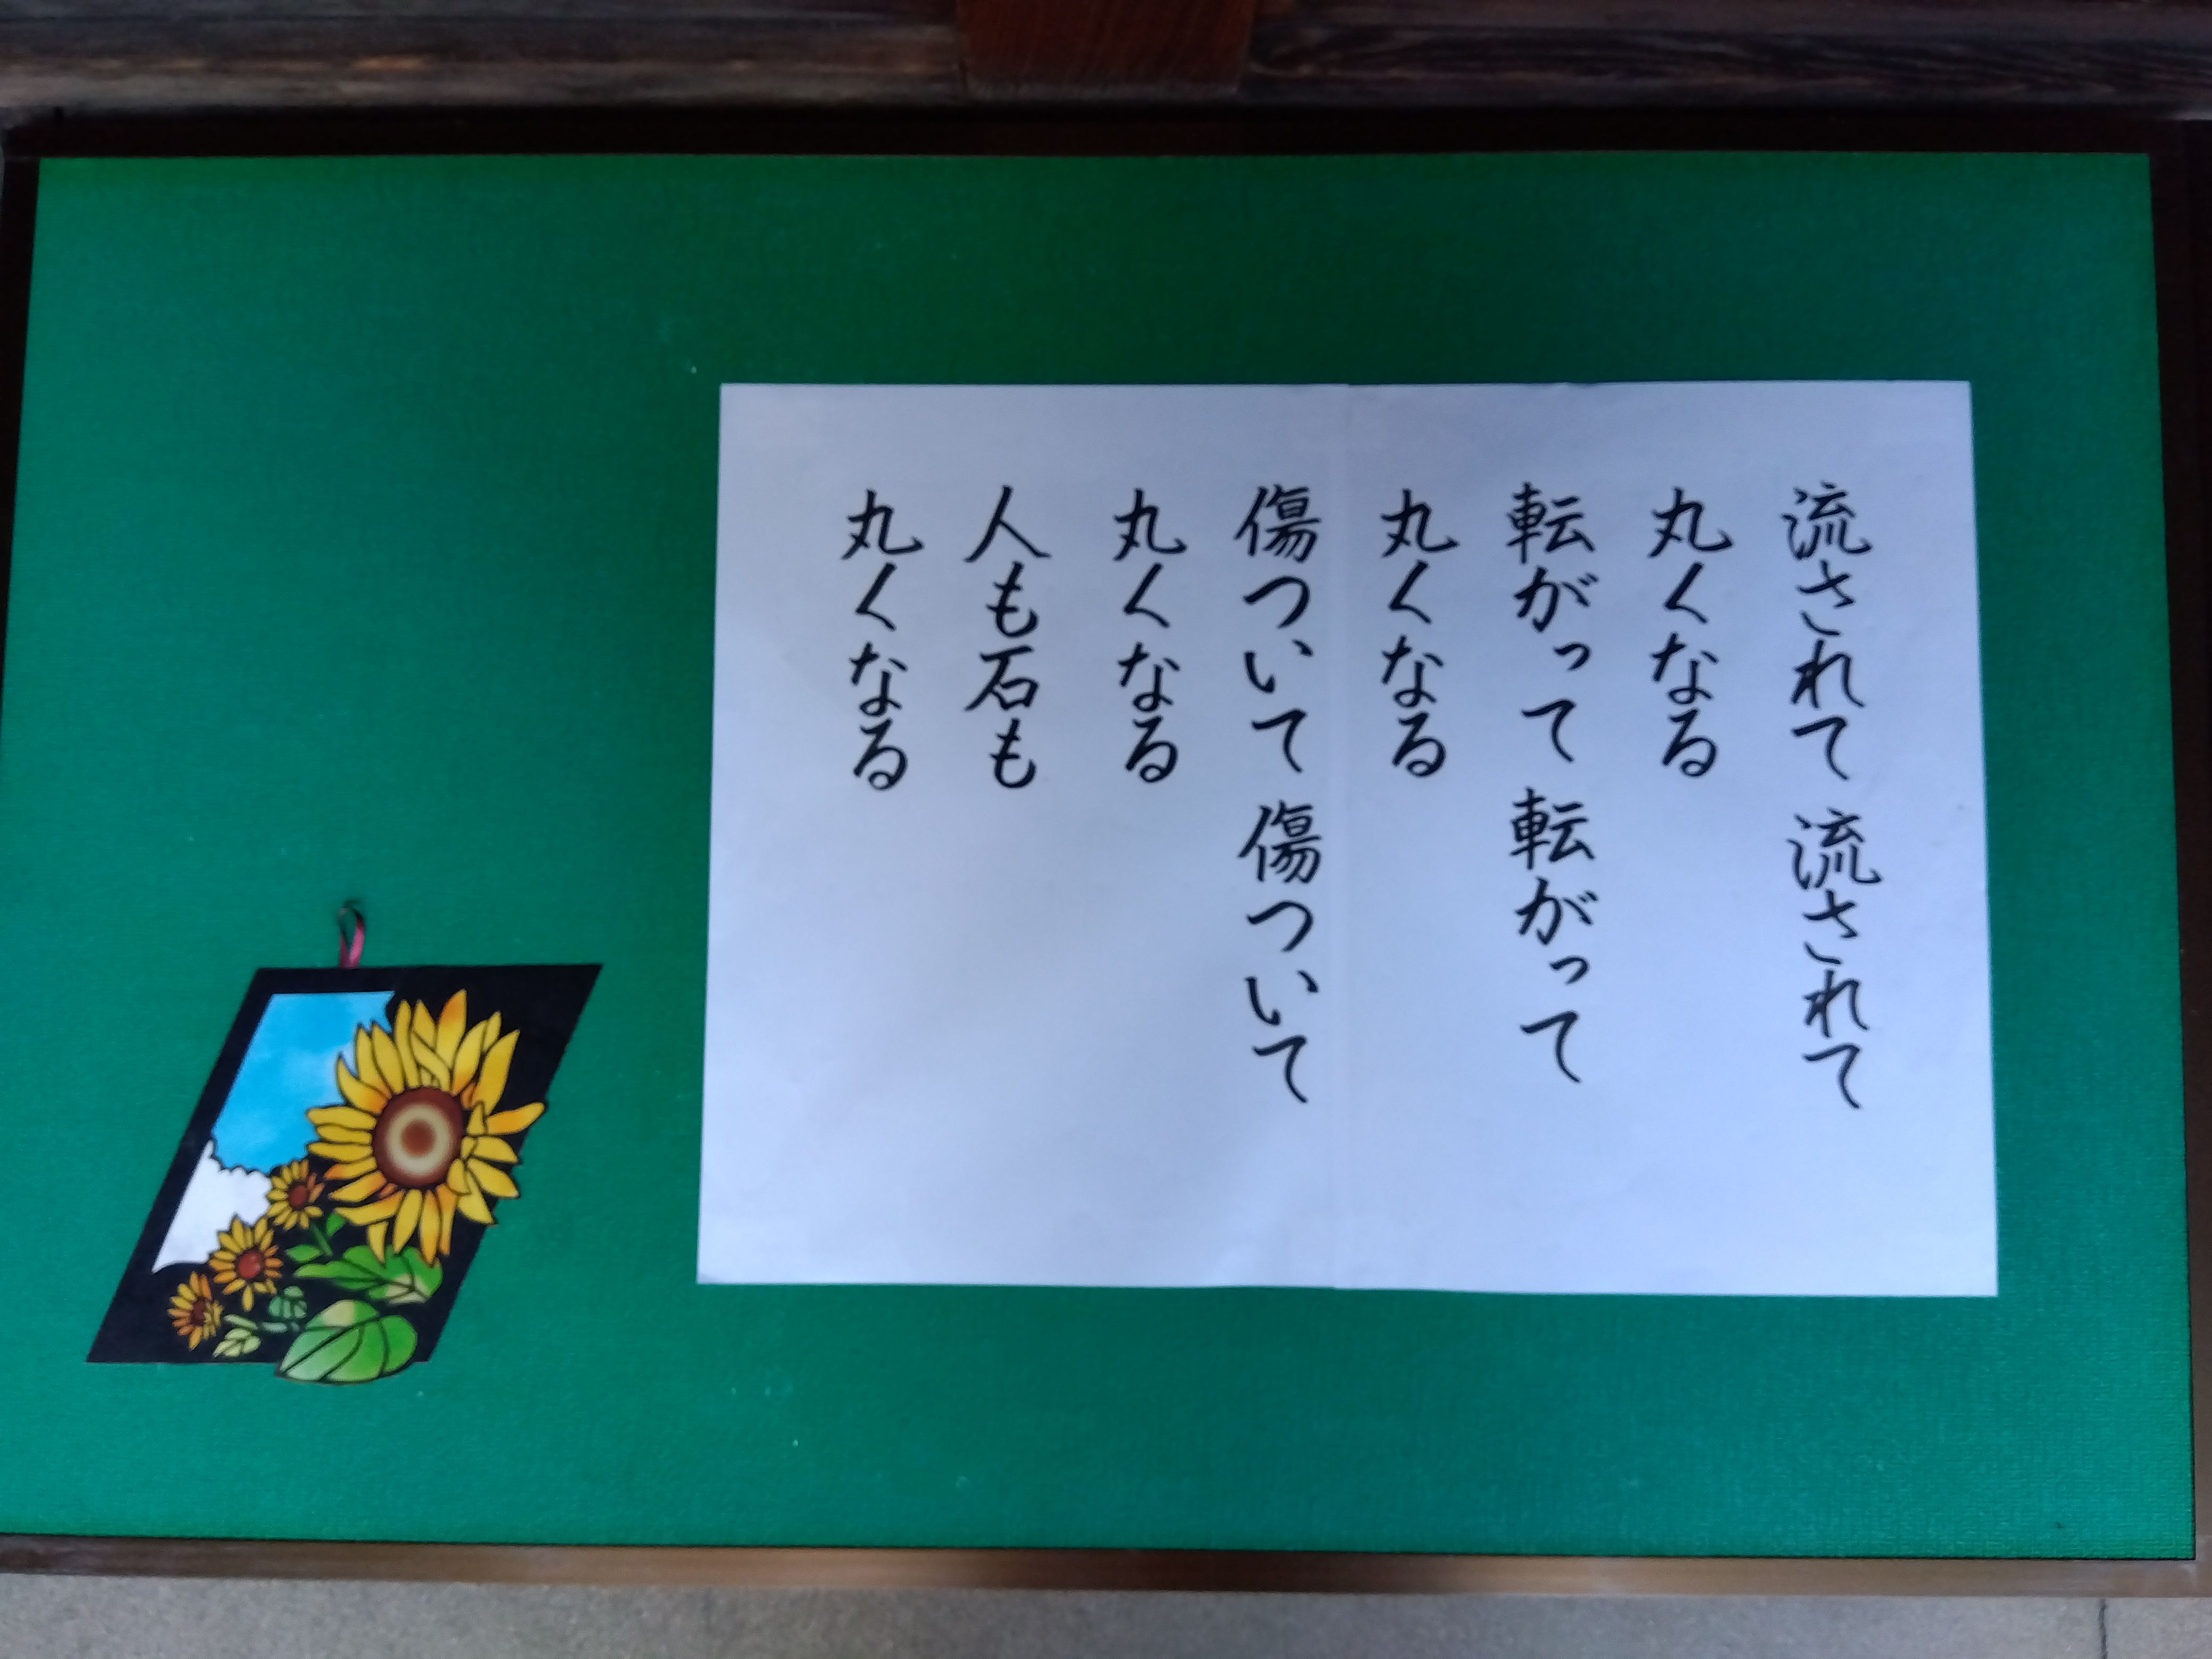 流されて 流されて
丸くなる
転がって 転がって
丸くなる
傷ついて 傷ついて
丸くなる
人も石も
丸くなる